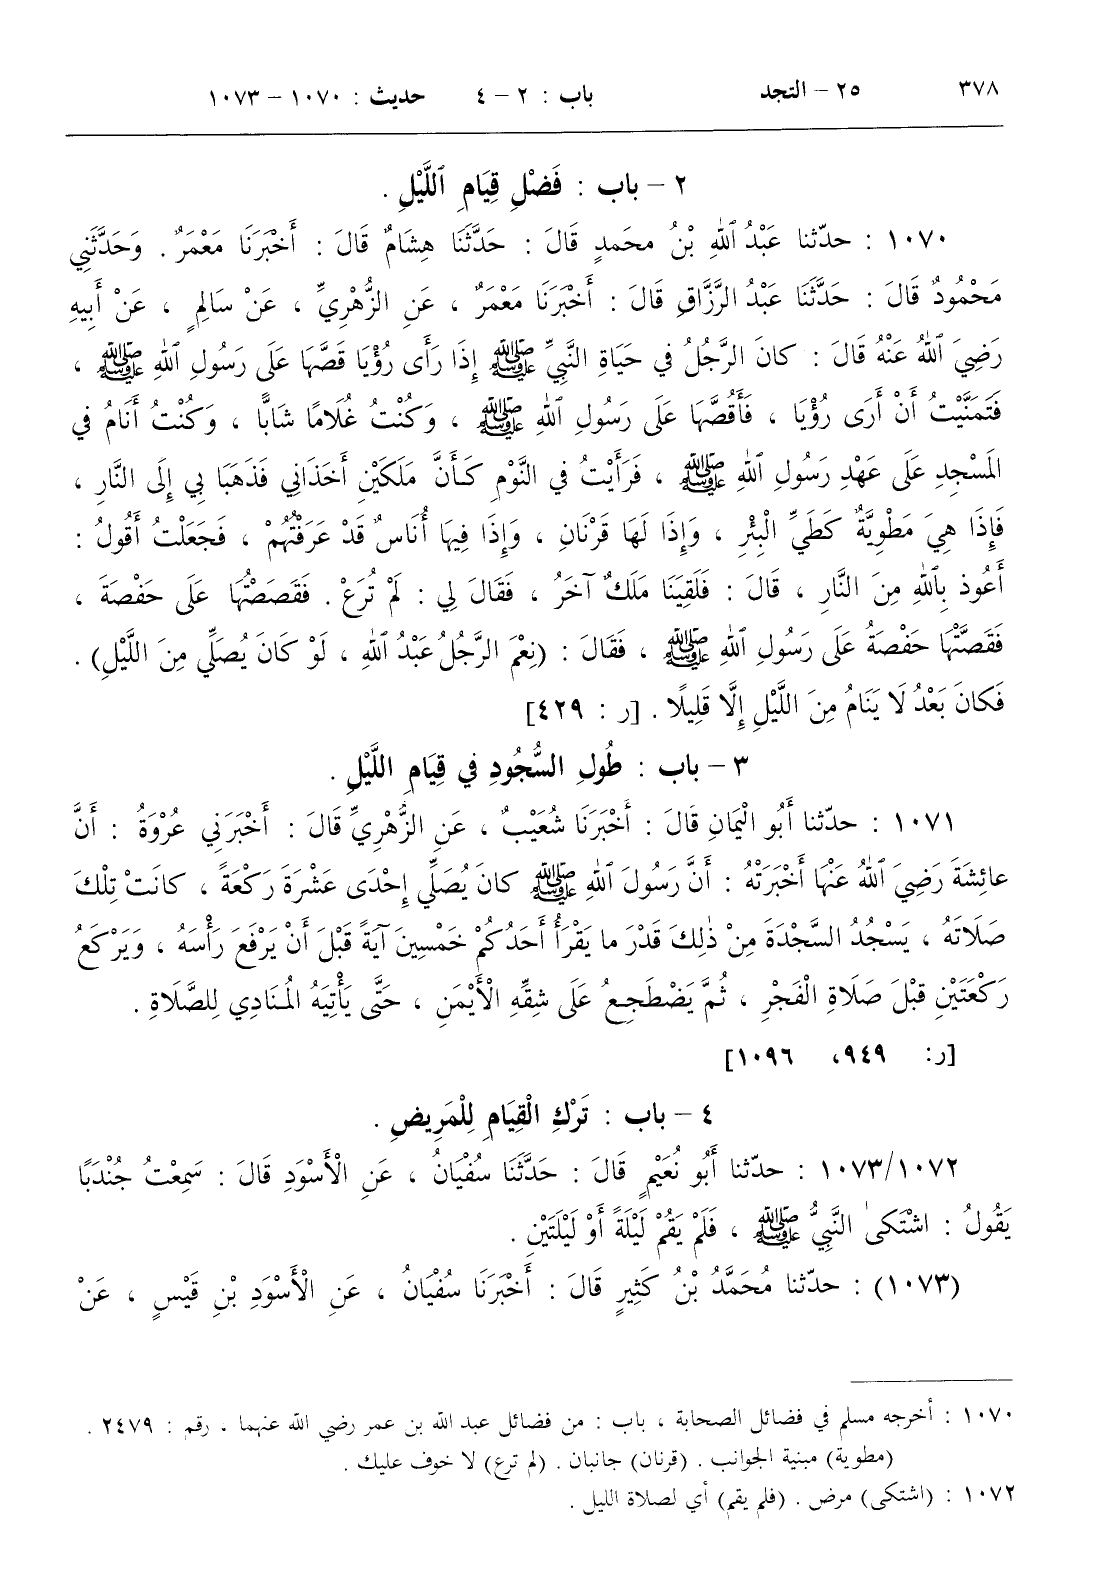 ٣٧٨ ٢٥ – التجد باب : ٢ – ٤ حديث : ١٠٧٠ – ١٠٧٣
٢ – باب : فَضْلِ قِيَامِ ٱللَّيْلِ .
١٠٧٠ : حدّثنا عَبْدُ ٱللهِ بْنُ محَمدٍ قَالَ : حَدَّثَنَا هِشَامٌ قَالَ : أَخْبَرَنَا مَعْمَرٌ . وَحَدَّثَنِي
مَحْمُودٌ قَالَ : حَدَّثَنَا عَبْدُ الرَّزَّاقِ قَالَ : أَخْبَرَنَا مَعْمَرٌ ، عَنِ الزُّهْرِيِّ ، عَنْ سَالِمٍ ، عَنْ أَبِيهِ
رَضِيَ ٱللهُ عَنْهُ قَالَ : كانَ الرَّجُلُ في حَيَاةِ النَّبِيِّ ﷺ إِذَا رَأَى رُؤْيَا قَصَّهَا عَلَى رَسُولِ ٱللهِ ﷺ ،
فَتَمَنَّيْتُ أَنْ أَرَى رُؤْيَا ، فَأَقُصَّهَا عَلَى رَسُولِ ٱللهِ ﷺ ، وَكُنْتُ غُلَامًا شَابًّا ، وَكُنْتُ أَنَامُ في
الْمَسْجِدِ عَلَى عَهْدِ رَسُولِ ٱللهِ ﷺ ، فَرَأَيْتُ في النَّوْمِ كَأَنَّ مَلَكَيْنِ أَخَذَانِي فَذَهَبَا بِي إِلَى النَّارِ ،
فَإِذَا هِيَ مَطْوِيَّةٌ كَطَيِّ الْبِئْرِ ، وَإِذَا لَهَا قَرْنَانِ ، وَإِذَا فِيهَا أُنَاسٌ قَدْ عَرَفْتُهُمْ ، فَجَعَلْتُ أَقُولُ :
أَعُوذ بِٱللهِ مِنَ النَّارِ ، قَالَ : فَلَقِيَنَا مَلَكٌ آخَرُ ، فَقَالَ لِي : لَمْ تُرَعْ . فَقَصَصْتُهَا عَلَى حَفْصَةَ ،
فَقَصَّتْهَا حَفْصَةُ عَلَى رَسُولِ ٱللهِ ﷺ ، فَقَالَ : (نِعْمَ الرَّجُلُ عَبْدُ ٱللهِ ، لَوْ كانَ يُصَلِّي مِنَ اللَّيْلِ) .
فَكانَ بَعْدُ لَا يَنَامُ مِنَ اللَّيْلِ إِلَّا قَلِيلًا . [ر : ٤٢٩]
٣ – باب : طُولِ السُّجُودِ في قِيَامِ اللَّيْلِ .
١٠٧١ : حدّثنا أَبُو الْيَمَانِ قَالَ : أَخْبَرَنَا شُعَيْبٌ ، عَنِ الزُّهْرِيِّ قَالَ : أَخْبَرَنِي عُرْوَةُ : أَنَّ
عائِشَةَ رَضِيَ ٱللهُ عَنْهَا أَخْبَرَتْهُ : أَنَّ رَسُولَ ٱللهِ ﷺ كانَ يُصَلِّي إِحْدَى عَشْرَةَ رَكْعَةً ، كانَتْ تِلْكَ
صَلَاتَهُ ، يَسْجُدُ السَّجْدَةَ مِنْ ذٰلِكَ قَدْرَ ما يَقْرَأُ أَحَدُكُمْ خَمْسِينَ آيَةً قَبْلَ أَنْ يَرْفَعَ رَأْسَهُ ، وَيَرْكَعُ
رَكْعَتَيْنِ قَبْلَ صَلَاةِ الْفَجْرِ ، ثُمَّ يَضْطَجِعُ عَلَى شِقِّهِ الْأَيْمَنِ ، حَتَّى يَأْتِيَهُ الْمُنَادِي لِلصَّلَاةِ .
[ر: ٩٤٩، ١٠٩٦]
٤ – باب : تَرْكِ الْقِيَامِ لِلْمَرِيضِ .
١٠٧٣/١٠٧٢ : حدّثنا أَبُو نُعَيْمٍ قَالَ : حَدَّثَنَا سُفْيَانُ ، عَنِ الْأَسْوَدِ قَالَ : سَمِعْتُ جُنْدَبًا
يَقُولُ : اشْتَكىٰ النَّبِيُّ ﷺ ، فَلَمْ يَقُمْ لَيْلَةً أَوْ لَيْلَتَيْنِ .
(١٠٧٣) : حدّثنا مُحَمَّدُ بْنُ كَثِيرٍ قَالَ : أَخْبَرَنَا سُفْيَانُ ، عَنِ الْأَسْوَدِ بْنِ قَيْسٍ ، عَنْ
١٠٧٠ : أخرجه مسلم في فضائل الصحابة ، باب : من فضائل عبد الله بن عمر رضي الله عنهما ، رقم : ٢٤٧٩ .
(مطوية) مبنية الجوانب . (قرنان) جانبان . (لم ترع) لا خوف عليك .
١٠٧٢ : (اشتكى) مرض . (فلم يقم) أي لصلاة الليل .